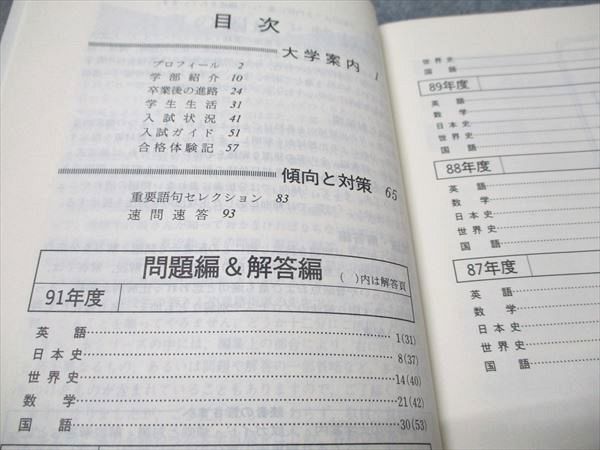 目次
大学案内 1
プロフィール 2
学部紹介 10
卒業後の進路 24
学生生活 31
入試状況 41
入試ガイド 51
合格体験記 57
傾向と対策 65
重要語句セレクション 83
速問速答 93
問題編&解答編 ( )内は解答頁
91年度
英語 1(31)
日本史 8(37)
世界史 14(40)
数学 21(42)
国語 30(53)
世界史
国語
89年度
英語
数学
日本史
世界史
国語
88年度
英語
数学
日本史
世界史
国語
87年度
英語
数学
日本史
世界史
国語